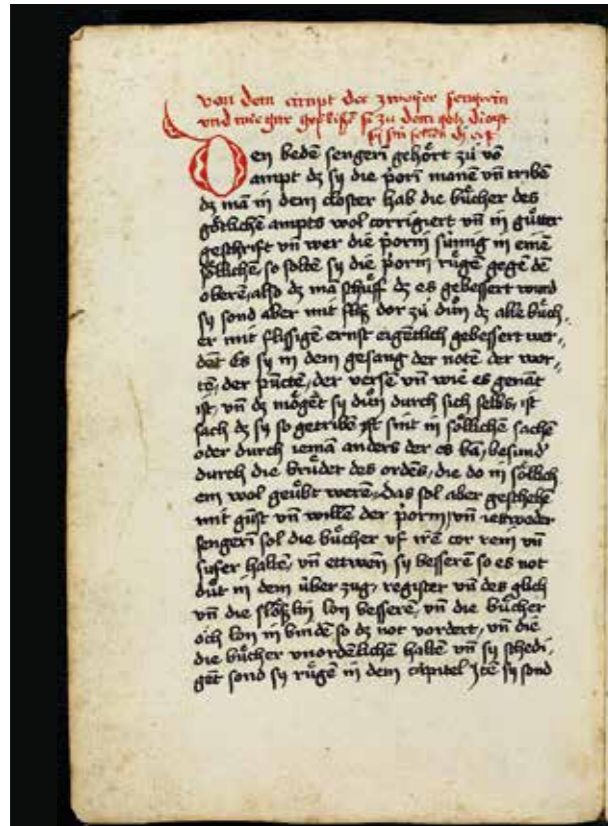 von dem ampt der zweyer sengerin
vnd wie gar geflissen sy zu dem gotz dienst
sy sin sollen
Den bedē sengerī gehört zů vō
ampt dz sy die p̄orī manē vn̄ tribē
dz mā in dem closter hab die bůcher des
götlichē ampts wol corrigiert vn̄ in gůtter
geschrift vn̄ wer die p̄orin sümig in einē
söllichē, so soltē sy die p̄orin růgē gegē dē
oberē, also dz mā schůff dz es gebessert wurd
sy sond aber mit fliß dor zů důn dz alle bůch,,
er mit flissigē ernst eigētlich gebessert wer,,
dēt Es sy in dem gesang der notē der wor,,
tē, der pūctē, der versē vn̄ wie es genāt
ist, vn̄ dz mögēt sy důn durch sich selbs, ist
sach dz sy so getribē sint in söllichē sachē
oder durch iemā anders der es kā, besund
durch die brůder des ordēs, die do in söllich
em wol geůbt werē, das sol aber geschehē
mit gūst vn̄ willē der p̄orin, vn̄ ietweder
sengerī sol die bůcher vf irē cor rein vn̄
sufer haltē, vn̄ ettwen sy besserē so es not
důt in dem über zug, register vn̄ des glich
vn̄ die slößlin lon besserē, vn̄ die bůcher
och lon in bindē so dz not vordert, vn̄ die
die bůcher vnordēlichē haltē vn̄ sy schedi,
gēt sond sy růgē in dem capitel Itē sy sond